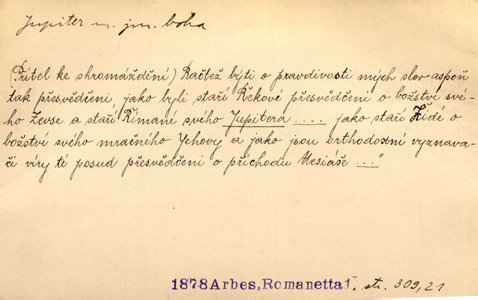 Jupiter m. jm. boha
(Přítel ke shromáždění) Račtež býti o pravdivosti mých slov aspoň
tak přesvědčeni, jako byli staří Řekové přesvědčeni o božství své-
ho Zevse a staří Římané svého Jupitera .... jako staří Židé o
božství svého mračného Jehovy a jako jsou orthodoxní vyznava-
či víry té posud přesvědčeni o příchodu Mesiáše ..."
1878 Arbes, Romanetta 1. str. 309,21